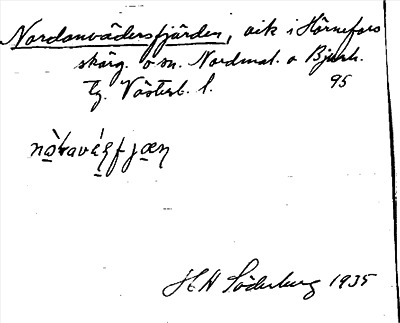 Nordanvädersfjärden, vik i Hörnefors
skärg. o sn. Nordmal. o Bjurh.
tg. Västerb. l. 95
H H Söderberg 1935